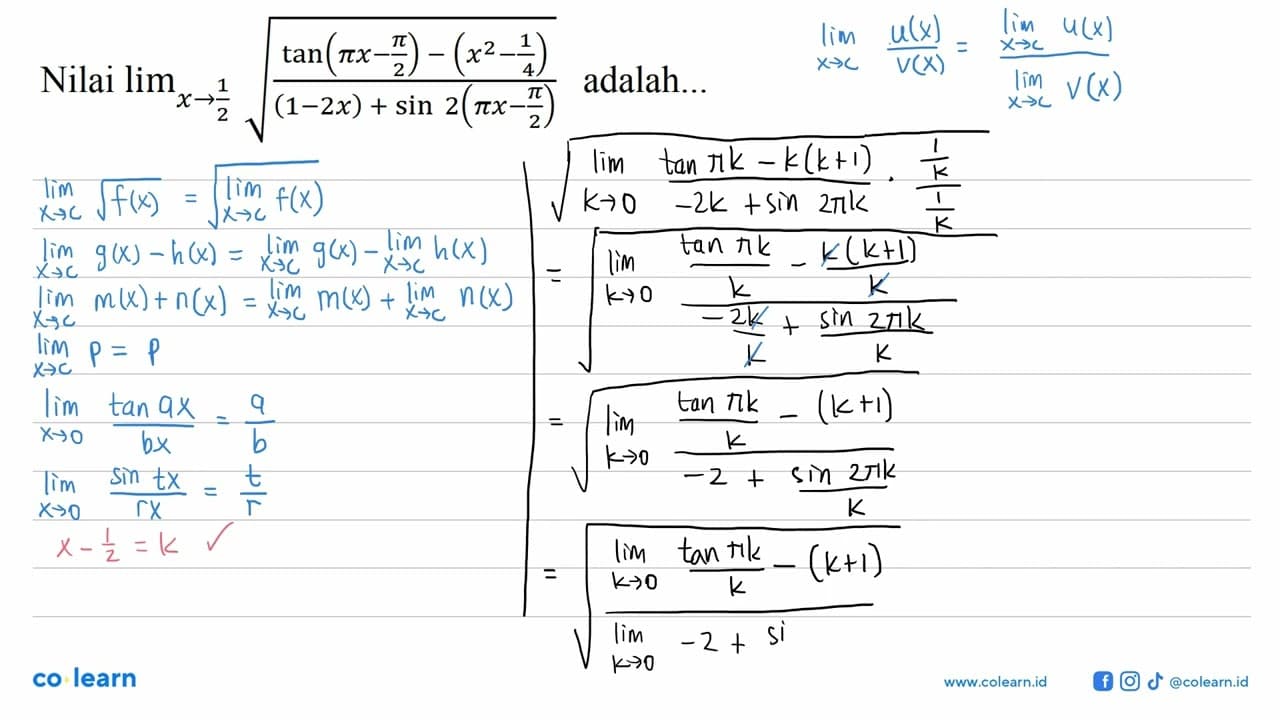 Nilai lim x→1/2 √((tan(πx−π/2) − (x²−1/4))/((1−2x) + sin 2(πx−π/2))) adalah...
lim x→c u(x)/v(x) = lim x→c u(x) / lim x→c v(x)
lim x→c √f(x) = √(lim x→c f(x))
lim x→c g(x) − h(x) = lim x→c g(x) − lim x→c h(x)
lim x→c m(x) + n(x) = lim x→c m(x) + lim x→c n(x)
lim x→c p = p
lim x→0 tan ax / bx = a/b
lim x→0 sin tx / rx = t/r
x − 1/2 = k ✓
√(lim k→0 (tan πk − k(k+1))/(−2k + sin 2πk) · (1/k)/(1/k))
= √(lim k→0 (tan πk/k − k(k+1)/k)/(−2k/k + sin 2πk/k))
= √(lim k→0 (tan πk/k − (k+1))/(−2 + sin 2πk/k))
= √((lim k→0 tan πk/k − (k+1))/(lim k→0 −2 + si
co learn
www.colearn.id
@colearn.id